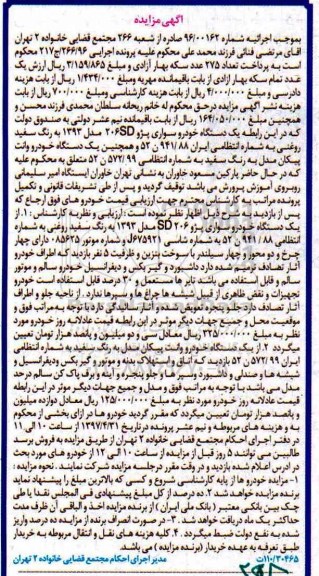 آگهی مزایده
بموجب اجرائیه شماره ۹۶/۰۰۱۶۲ صادره از شعبه ۲۶۶ مجتمع قضایی خانواده ۲ تهران
آقای مرتضی فنائی فرزند محمد علی محکوم علیه پرونده اجرایی ۲۱۷/۲۶۶/۹۶ محکوم
است به پرداخت تعداد ۲۷۵ عدد سکه بهار آزادی و مبلغ ۳/۱۵۹/۸۶۵ ریال از بابت ارزش یک
عدد تمام سکه بهار آزادی از بابت باقیمانده مهریه ومبلغ ۱/۴۳۴/۰۰۰ ریال از بابت هزینه
دادرسی و مبلغ ۴/۰۰۰/۰۰۰ ریال از بابت هزینه کارشناسی ومبلغ ۷۰۰/۰۰۰ ریال از بابت
هزینه نشر آگهی مزایده درحق محکوم له خانم ریحانه سلطان محمدی فرزند محسن و
مبلغ ۱۶۴/۰۵۰/۰۰۰ ریال از بابت باقیمانده نیم عشر دولتی به صندوق دولت
که در این رابطه یک دستگاه خودرو سواری پژو ۲۰۶SD مدل ۱۳۹۳ به رنگ سفید
روغنی به شماره انتظامی ایران ۸۸/ ۹۴۱ن ۵۲ و همچنین یک دستگاه خودرو وانت
پیکان مدل به رنگ سفید به شماره انتظامی ۹۹/ ۵۷۲ن ۵۲ متعلق به محکوم علیه
که در حال حاضر پارکین مسعود خاوران به نشانی تهران خاوران ایستگاه امیر سلیمانی
روبروی آموزش پرورش می باشد توقیف گردید و پس از طی تشریفات قانونی و تکمیل
پرونده مراتب به کارشناس محترم جهت ارزیابی قیمت خودرو های فوق ارجاع که
پس از بازدید به شرح ذیل اظهار نظر نموده است : ارزیابی و نظریه کارشناس : ۱. از
یک دستگاه خودرو سواری پژو ۲۰۶ SD مدل ۱۳۹۳ به رنگ سفید روغنی به شماره
انتظامی ۸۸/ ۹۴۱ن ۵۲ به شماره شاسی و شماره موتور ۰۸۵۶۲۵ دارای چهار
چرخ و دو محور و چهار سیلندر با سوخت بنزین و ظرفیت ۵ نفر بازدید که اطراف خودرو
آثار تصادف ترمیم شده دارد داشبورد و گیربکس و دیفرانسیل خودرو سالم و موتور
سالم و قابل استفاده می باشد تایر ها مستعمل و ۳۰ درصد قابل استفاده است خودرو
تجهیزات و نقض ظاهری از قبیل شیشه ها چراغ ها و سپرها ندارد . از ناحیه جلو و اطراف
آثار تصادف دارد جلو پنجره تعویض شده و آثار سائیدگی دارد با توجه به مراتب فوق و
موقعیت محل و جمیع جهات دیگر موثر در این رابطه قیمت عادلانه روز خودرو مورد
نظر به مبلغ ۳۲۵/۰۰۰/۰۰۰ ریال معادل سی و دو میلیون و پانصد هزار تومان تعیین
میگردد ۲. از یک دستگاه خودرو وانت پیکان مدل به رنگ سفید به شماره انتظامی
ایران ۹۹/ ۵۷۲ن ۵۲ بازدید که آثار استهلاک بدنه و موتور و گیربکس ودیفرانسیل و
مدل می باشد با توجه به مراتب فوق و مدل و جمیع جهات دیگر موثر در این رابطه
قیمت عادلانه روز خودرو مورد نظر به مبلغ ۱۲۵/۰۰۰/۰۰۰ ریال معادل دوازده میلیون
و پانصد هزار تومان تعیین میگردد که مقرر گردید خودرو ها در ازای بخشی از محکوم
به و هزینه های مربوطه و نیم عشر پرونده درتاریخ ۱۳۹۷/۴/۳۱ از ساعت ۱۰ الی ۱۱
در دفتر اجرای احکام مجتمع قضایی خانواده ۲ تهران از طریق مزایده به فروش برسد
طالبین می توانند ۵ روز قبل از مزایده از ساعت ۱۰ الی ۱۲ از خودرو های مورد بحث
در آدرس اعلام شده بازدید و در وقت مقرر درجلسه مزایده شرکت نمایند . نحوه مزایده :
۱- مزایده خودرو ها از پایه کارشناسی شروع و کسی که بالاترین مبلغ را پیشنهاد نماید
برنده مزایده خواهد شد ۲. ده درصد از کل مبلغ پیشنهادی فی المجلس نقدا یا طی
چک بین بانکی معتبر ( بانک ملی ایران ) از برنده مزایده اخذ و الباقی آن ظرف مدت
حداکثر یک ماه دریافت خواهد شد. ۳- در صورت انصراف برنده از مزایده ده درصد واریز
شده به نفع دولت ضبط میگردد . ۴. کلیه هزینه های نقل و انتقال مربوطه به خریدار
طبق تعرفه به عهده خریدار (برنده مزایده ) می باشد.
مدیر اجرای احکام مجتمع قضایی خانواده ۲ تهران
۱۱۰/۳۰۴۶۵/ت